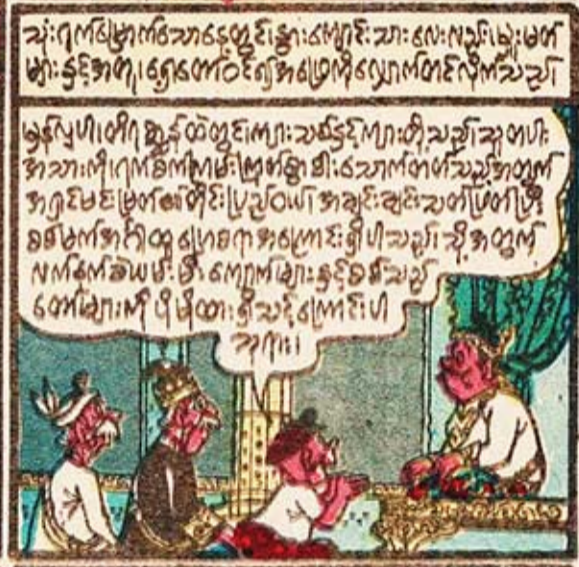 သုံးရက်မြောက်သောနေ့တွင်၊ နွားကျောင်းသားလေးလည်း၊ မှူးမတ်
များနှင့်အတူ၊ ရှေ့တော်ဝင်၍ အဖြေကိုလျှောက်တင်လိုက်သည်၊
မှန်လှပါ၊ တိရစ္ဆာန်ထဲတွင်၊ ကျားသစ်နှင့်ကျားတို့သည်၊ သူတပါး
အသားကိုရက်စက်ကြမ်းကြုတ်စွာစါးသောက်တတ်သည့်အတွက်
အရှင်မင်းမြတ်၏တိုင်းပြည်ဝယ်၊ အချင်းချင်းသတ်ဖြတ်ပြီး
စစ်မက်အင်္ဂါထူပြောစရာအကြောင်းရှိပါသည်၊ သို့အတွက်
လက်နက်ခဲယမ်းမီးကျောက်များနှင့်စစ်သည်
တော်များကို ပိုမိုထားရှိသင့်ကြောင်းပါ
ဘုရား၊